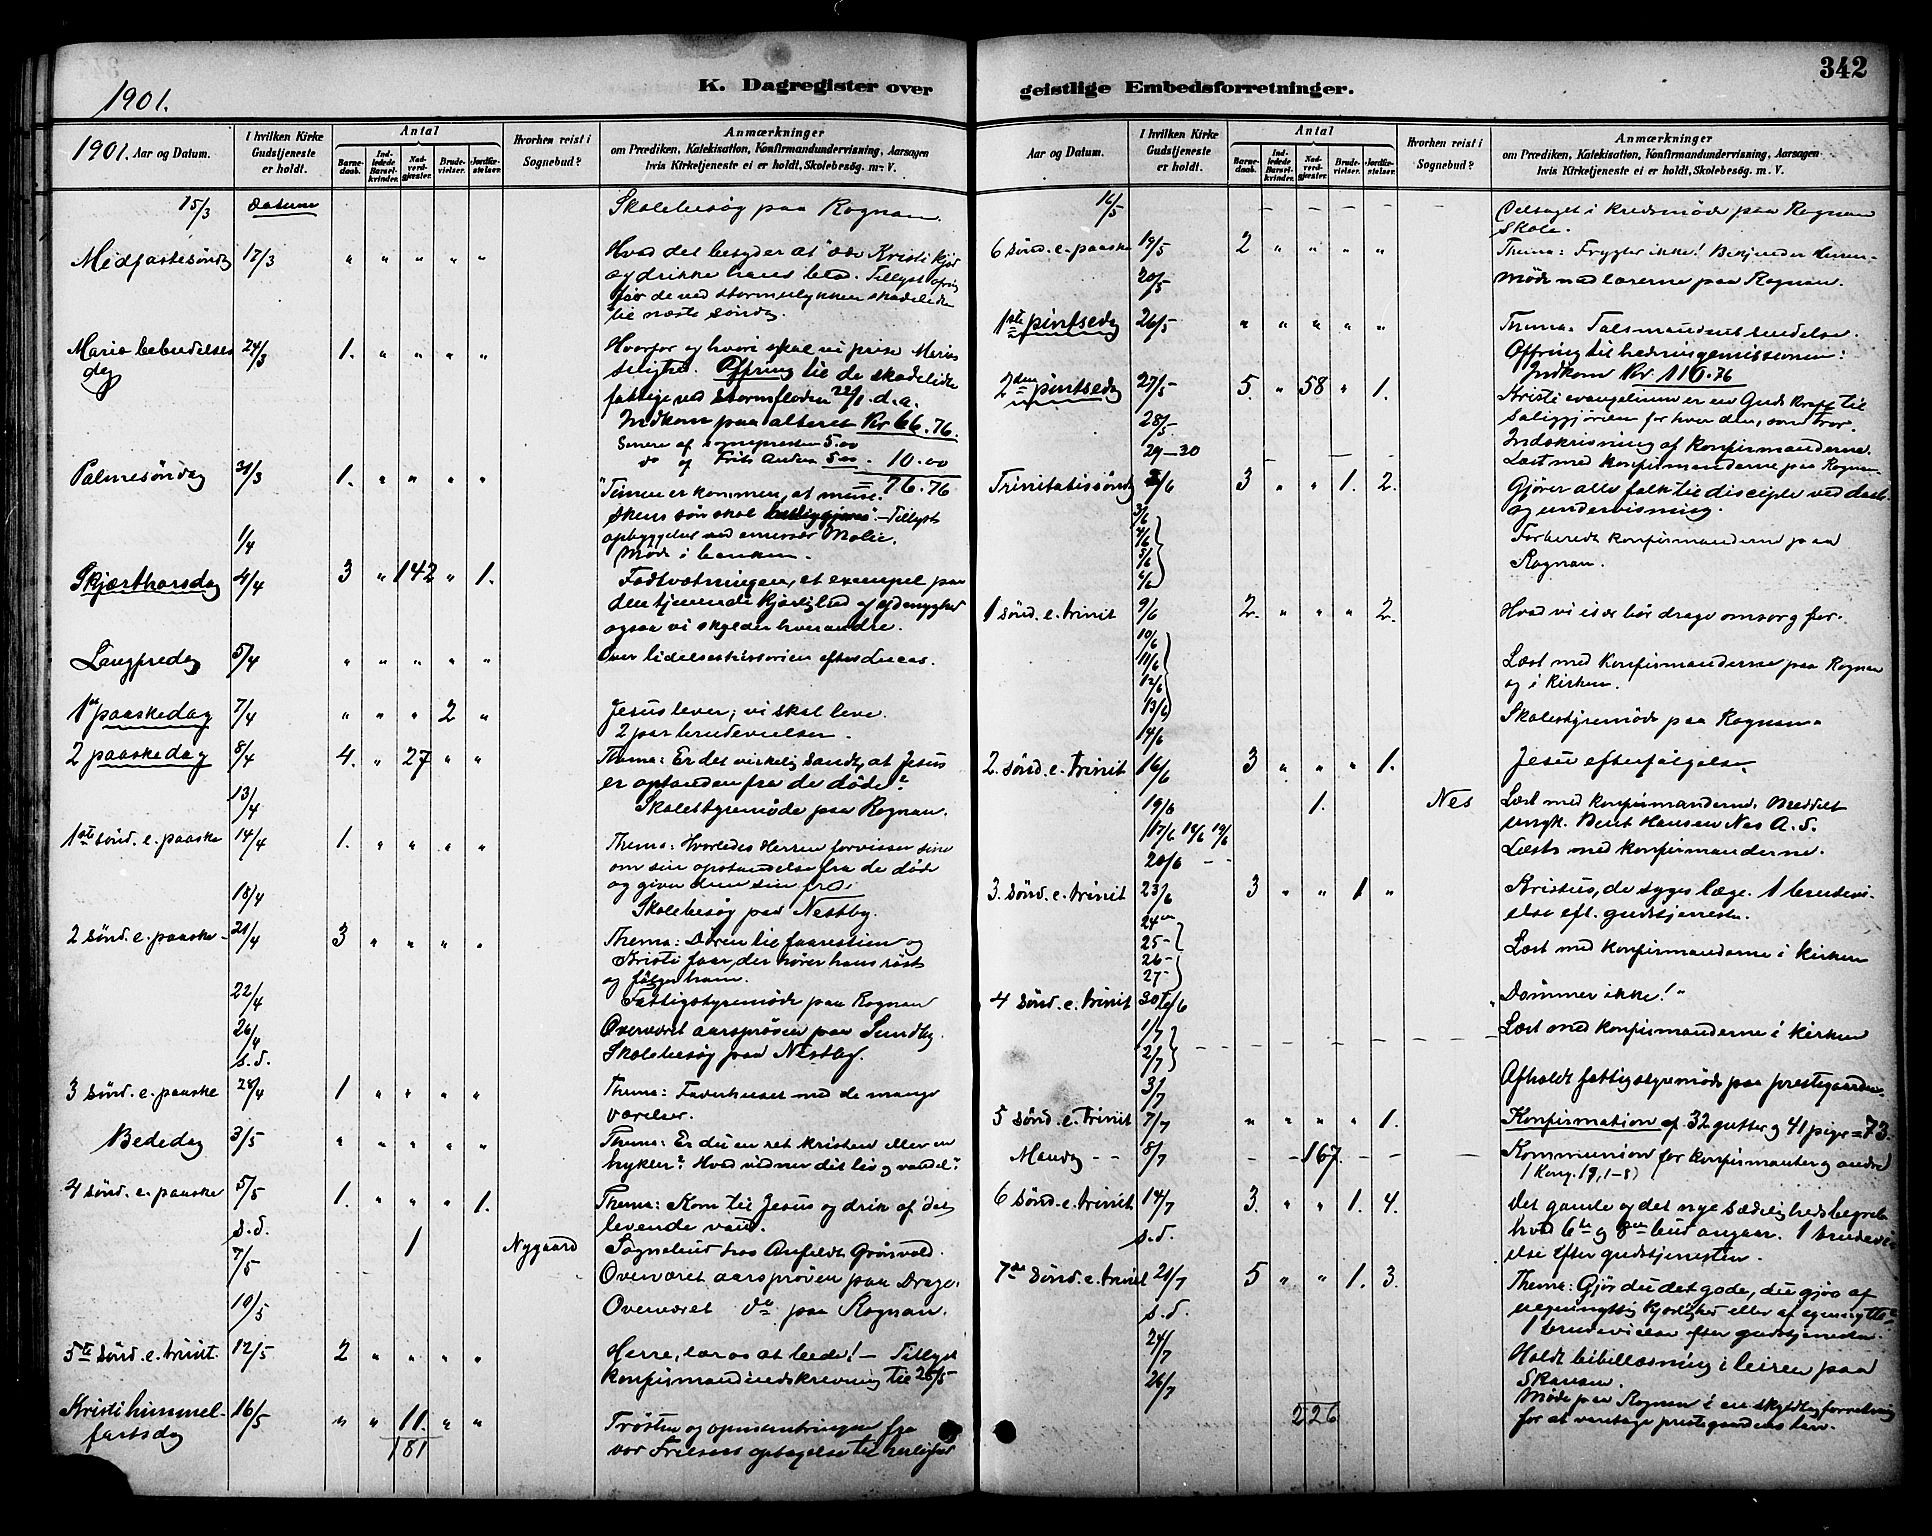 342
1901.
K. Dagregister over
geistlige Embedsforretninger.
1901. Aar og Datum.
I hvilken Kirke Gudstjeneste er holdt.
Antal
Barnedaab.
Indledede Barselkvinder.
Nadverdgjester.
Brudevielser.
Jordfæstelser.
Hvorhen reist i Sognebud?
Anmærkninger
om Prædiken, Katekisation, Konfirmandundervisning, Aarsagen
hvis Kirketjeneste ei er holdt, Skolebesøg. m. V.
15/3 Skolebesøg paa Rognan.
Midfastesøndag 17/3 " " " " " Hvad det betyder at æde Kristi kjød
og drikke hans blod. Tillyst
de ved
til næste søndag.
Maria bebudelses 24/3 1. " " " " Hvorfor og hvori skal vi prise Marias
dag
Offring til de skadelidte
fattige ved stormfloden 22/1 d.a.
Indkom paa alteret Kr 66.76.
Senere af sognepresten 5.00
do af 5.00 . 10.00
= 76.76
Palmesøndag 31/3 1. " " " " "Timen er kommen, at menne-
skens søn skal Tillyst
opbyggelse ved
1/4 Møde i banken.
Skjærthorsdag 4/4 3 " 142 " 1. Fodtvætningen, et exempel paa
den tjenende kjærlighed og ydmyghed
ogsaa vi skylder hverandre.
Langfredag 5/4 " " " " " Over lidelseshistorien efter Lucas.
1ste paaskedag 7/4 " " " 2 " Jesus lever; vi skal leve.
2 par brudevielser.
2 paaskedag 8/4 4. " 27 " " Thema: Er det virkelig sandt, at Jesus
er opstanden fra de døde?
13/4 Skolestyremøde paa Rognan.
1ste sønd. e. paaske 14/4 1. " " " " Thema: Hvorledes Herren forvisser sine
om sin opstandelse fra de døde
og giver dem sin fred.
18/4 Skolebesøg paa Nestby.
2 sønd. e. paaske 21/4 3 " " " " Thema: Døren til faarestien og
Kristi faar, der hører hans røst
og følger ham.
22/4 Fattigstyremøde paa Rognan
26/4 Overværet aarsprøven paa Sundby.
s.d. Skolebesøg paa Nestby.
3 sønd. e. paaske 28/4 1 " " " " Thema: Faderhuset med de mange
værelser.
Bededag 3/5 " " " " " Thema: Er du en ret kristen eller en
hykler? Hvad vidner dit liv og vandel?
4 sønd. e. paaske 5/5 1. " " " 1. Thema: Kom til Jesus og drik af det
levende vand.
s.d. 1 Nygaard Sognebud hos Anfeldt Grønvold.
7/5 Overværet aarsprøven paa Drage.
10/5 Overværet do paa Rognan.
5te sønd. e. trinit. 12/5 2 " " " " Herre, lær os at bede! – Tillyst
konfirmandindskrivning til 28/5
Kristi himmel- 16/5 " " 11. " " Trøsten og opmuntringen fra
fartsdag 181 vor Frelsers optagelse til herlighed
Aar og Datum.
I hvilken Kirke Gudstjeneste er holdt.
Antal
Barnedaab.
Indledede Barselkvinder.
Nadverdgjester.
Brudevielser.
Jordfæstelser.
Hvorhen reist i Sognebud?
Anmærkninger
om Prædiken, Katekisation, Konfirmandundervisning, Aarsagen
hvis Kirketjeneste ei er holdt, Skolebesøg. m. V.
16/5 – – – – – – Deltaget i kredsmøde paa Rognan
skole.
6 sønd. e. paaske 19/5 2 " " " " Thema: Frygter ikke! Bekjender Herren
20/5 Møde med lærerne paa Rognan.
1ste pintsedag 26/5 " " " " " Thema: Talsmandens sendelse.
Offring til hedningemissionen:
Indkom Kr 110.76
2den pintsedag 27/5 5. " 58 " 1. Kristi evangelium er en Guds kraft til
saliggjørelse for hver den, som tror.
28/5 Indskrivning af konfirmanderne.
29–30 Læst med konfirmanderne paa Rognan
Trinitatissøndag 2/6 3 " " 1. 2. Gjører alle folk til disciple ved daab
og undervisning.
3/6
4/6 Forberedt konfirmanderne paa
5/6 Rognan.
6/6
1 sønd. e. trinit 9/6 2. " " " 2. Hvad vi især bør drage omsorg for.
10/6
11/6 Læst med konfirmanderne paa Rognan
12/6 og i kirken.
13/6
14/6 Skolestyremøde paa Rognan
2. sønd. e. trinit 16/6 3 " " " 1. Jesu efterfølgelse.
19/6 1. Nes Læst med konfirmanderne. Meddelt
17/6 18/6 19/6 Bent Hansen Nes A. S.
20/6 – – Læste med konfirmanderne.
3. sønd. e. trinit 23/6 3 " " 1 " Kristus, de syges læge. 1 brudevi-
else eft. gudstjeneste.
24de
25–
26–
27–
Læst med konfirmanderne i kirken
4 sønd. e. trinit 30te/6 "Dømmer ikke!"
1/7 Læst med konfirmanderne i kirken
2/7
3/7 Afholdt fattigstyremøde paa prestegaarden.
5 sønd. e. trinit 7/7 " " " " 1. Konfirmation af 32 gutter og 41 piger = 73.
Mandag – – 8/7 – – 167. – – – Kommunion for konfirmanter og andre
6 sønd. e. trinit 14/7 3. " " 1. 4. Det gamle og det nye sædelighedsbegreb
hvad 6te og 8de bud angaar. 1 brudevi-
s.d. else efter gudstjenesten.
7de sønd. e. trinit 21/7 5 " " 1. 3. Thema: Gjør du det gode, du gjør af
uegennyttig kjærlighed eller af egennytte?
s.d. 1 brudevielse efter gudstjenesten.
24/7 Holdt bibellæsning i leiren paa
26/7 Møde paa Rognan i en skydsforretning
226 for at